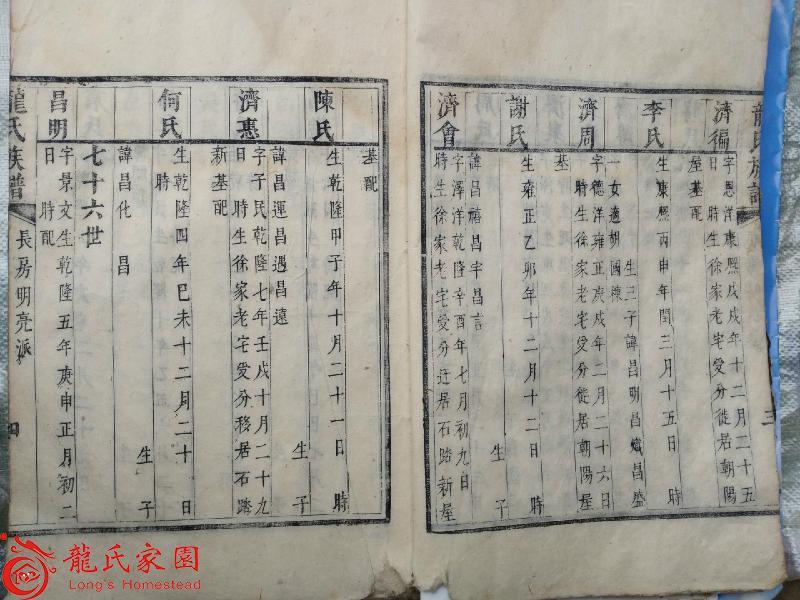 龍氏族譜
三
濟徧
字恩洋康熙戊戌年十二月二十五
日 時生徐家老宅受分徙居朝陽
屋基配
李氏
生康熙丙申年閏三月十五日 時
生三子諱昌明昌熾昌盛
一女適胡國棟
濟周
字德洋雍正庚戌年二月二十六日
時生徐家老宅受分徙居朝陽屋
基
謝氏
生雍正乙卯年十二月十二日 時
生子
諱昌禧昌宇昌言
濟會
字澤洋乾隆辛酉年七月初九日
時生徐家老宅受分迁居石踏新屋
基配
陳氏
生乾隆甲子年十月二十一日 時
生子
諱昌運昌遇昌遠
濟惠
字子民乾隆七年壬戌十月二十九
日 時生徐家老宅受分移居石踏
新基配
何氏
生乾隆四年己未十二月二十 日
時
生子
諱昌化 昌
七十六世
昌明
字景文生乾隆五年庚申正月初二
日 時配
龍氏族譜
長房明亮派
四
龍氏家園
Long's Homestead